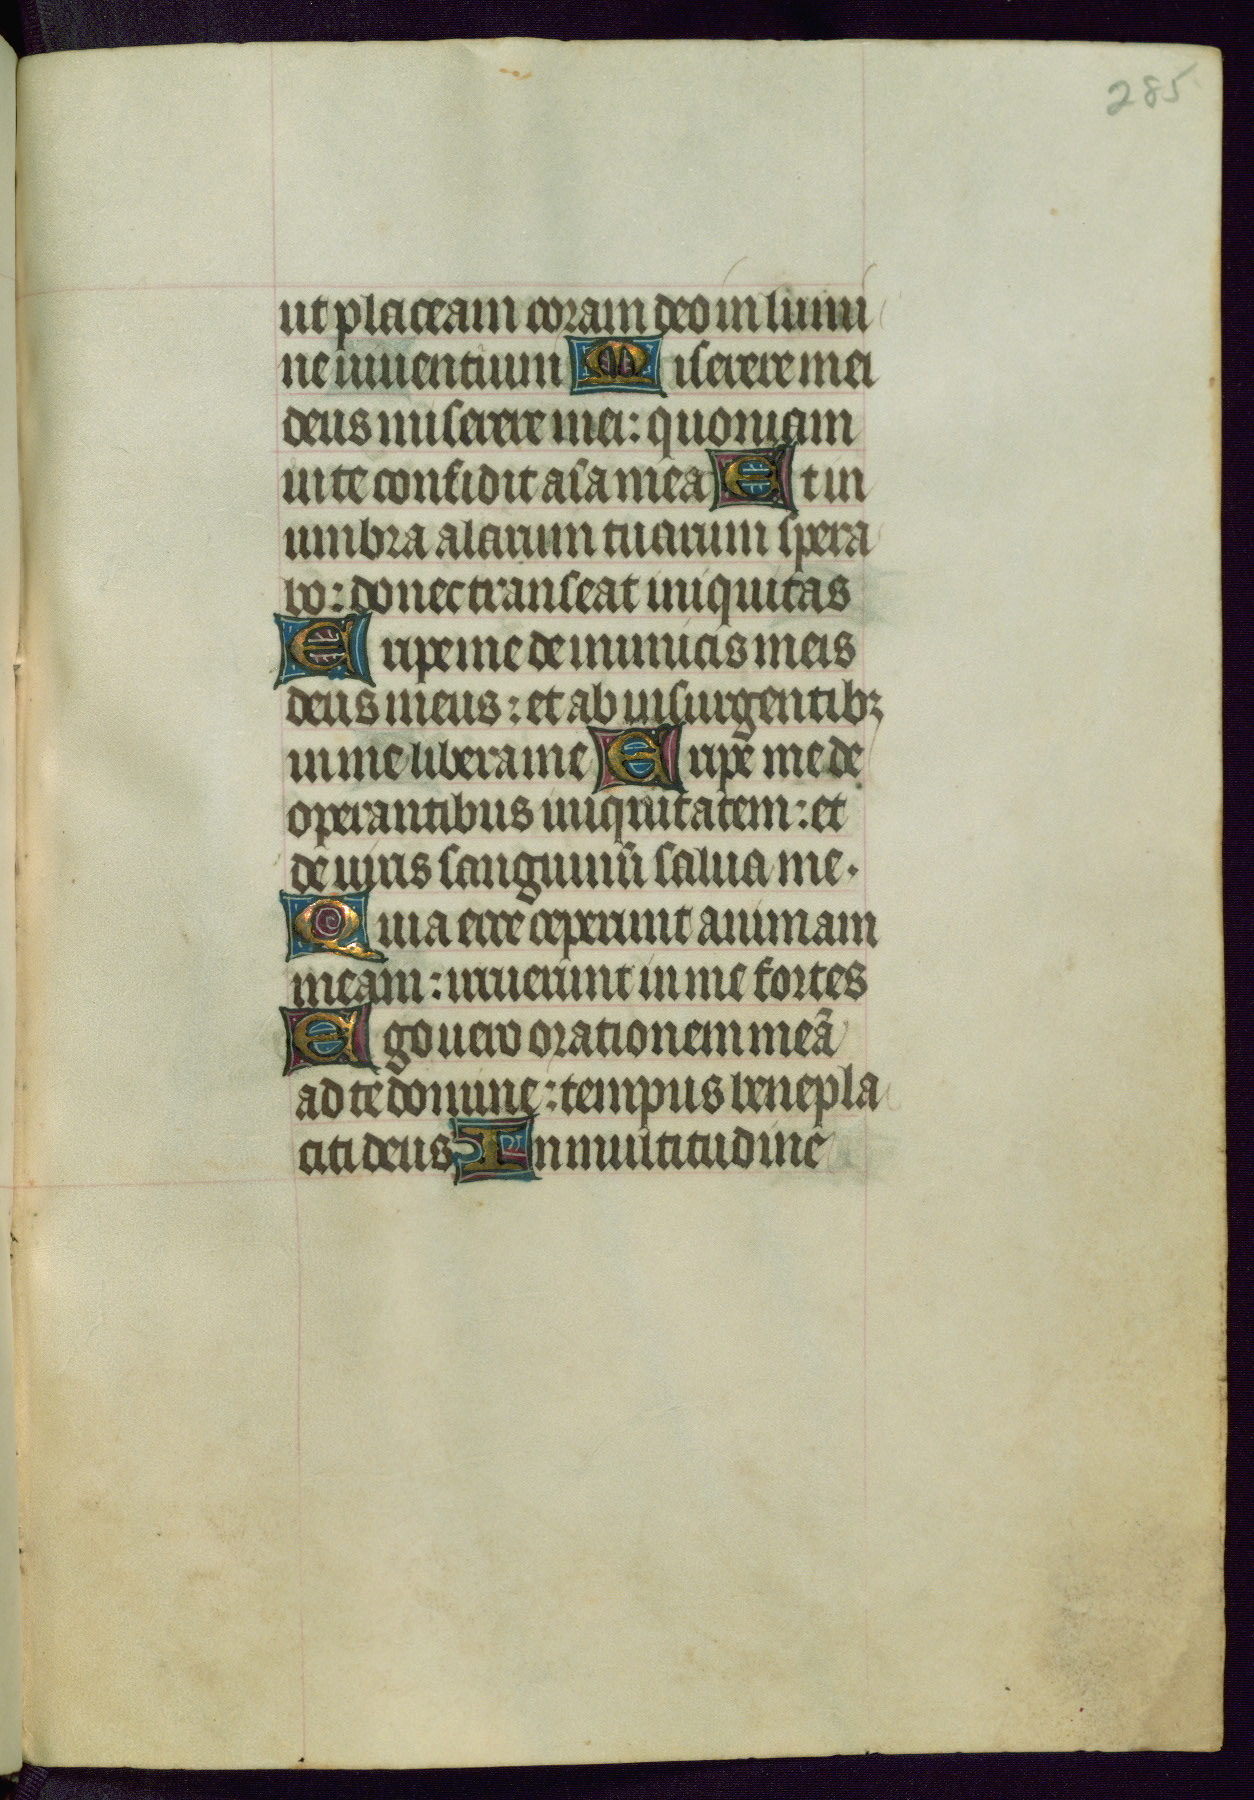 285
ut placeam coram deo in lumi
ne viventium Miserere mei
deus miserere mei: quoniam
in te confidit aīa mea Et in
umbra alarum tuarum spera
bo: donec transeat iniquitas
Eripe me de inimicis meis
deus meus: et ab insurgentibꝫ
in me libera me Eripe me de
operantibus iniquitatem: et
de viris sanguinū salua me.
Quia ecce ceperunt animam
meam: irruerunt in me fortes
Ego vero orationem meā
ad te domine: tempus benepla
citi deus In multitudine